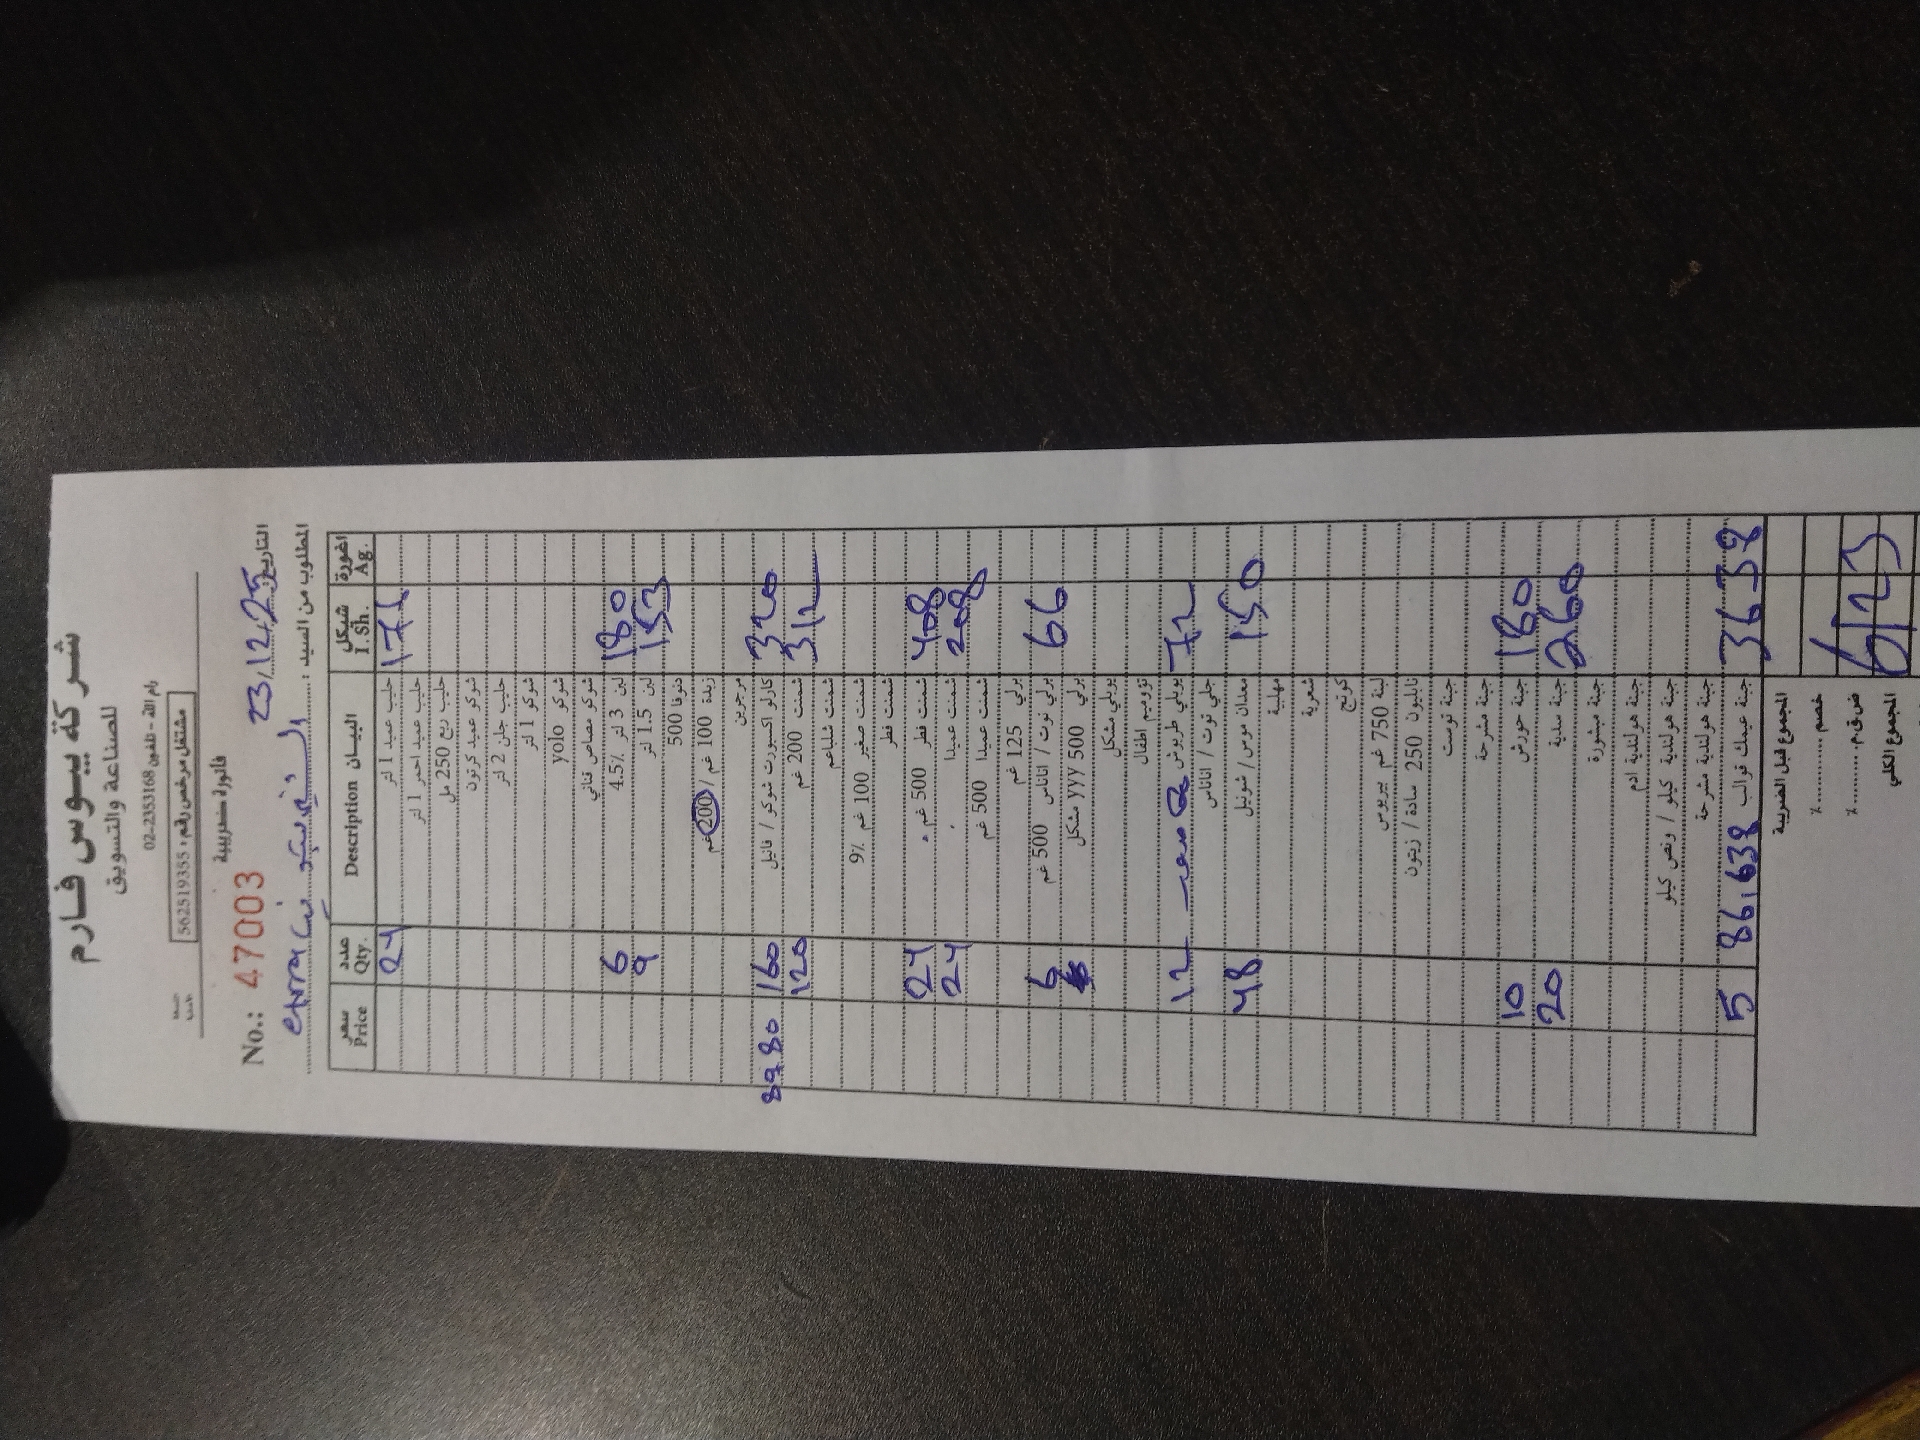 شركة بيوس فارم
للصناعة والتسويق
رام الله - تلفون 02-2353168
مشتغل مرخص رقم: 562519355
فاتورة ضريبية
No.: 47003 23/12/25 التاريخ:
المطلوب من السيد:
سعر Price عدد Qty. البيان Description شيكل I. Sh. اغورة Ag.
24 حليب عميد 1 لتر 176
حليب عميد احمر 1 لتر
حليب ربع 250 مل
شوكو عميد كرتون
حليب جلن 2 لتر
شوكو 1 لتر
شوكو yolo
شوكو مصاص قناني
6 لبن 3 لتر 4.5% 180
9 لبن 1.5 لتر 153
دنونا 500
زبدة 100 غم / 200 غم
مرجرين
8980 160 كارلو اكسبورت شوكو / فانيل 320
120 شمنت 200 غم 312
شمنت شلباعم
شمنت صغير 100 غم 9%
شمنت فطر
24 شمنت فطر 500 غم 408
24 شمنت عميدا 208
شمنت عميدا 500 غم
برلي 125 غم
6 برلي توت / اناناس 500 غم 66
برلي 500 YYY مشكل
يوبلي مشكل
تؤوميم اطفال
12 يوبلي طربوش 72
جلي توت / اناناس
48 معدان موس / شونيل 150
مهلبية
شعيرية
كوتج
لبنة 750 غم بيريوس
نابليون 250 سادة / زيتون
جبنة توست
جبنة مشرحة
10 جبنة حورش 180
20 جبنة سلدية 260
جبنة مبشورة
جبنة هولندية ادم
جبنة هولندية كيلو / ونص كيلو
جبنة هولندية مشرحة
5 86,638 جبنة عيمك قوالب 3638
المجموع قبل الضريبة
خصم .......... ٪
ض.ق.م. .......... ٪
المجموع الكلي 6123